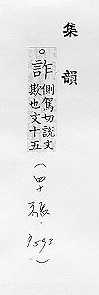 集韻
。詐側駕切說文
欺也文十五
（四十禡